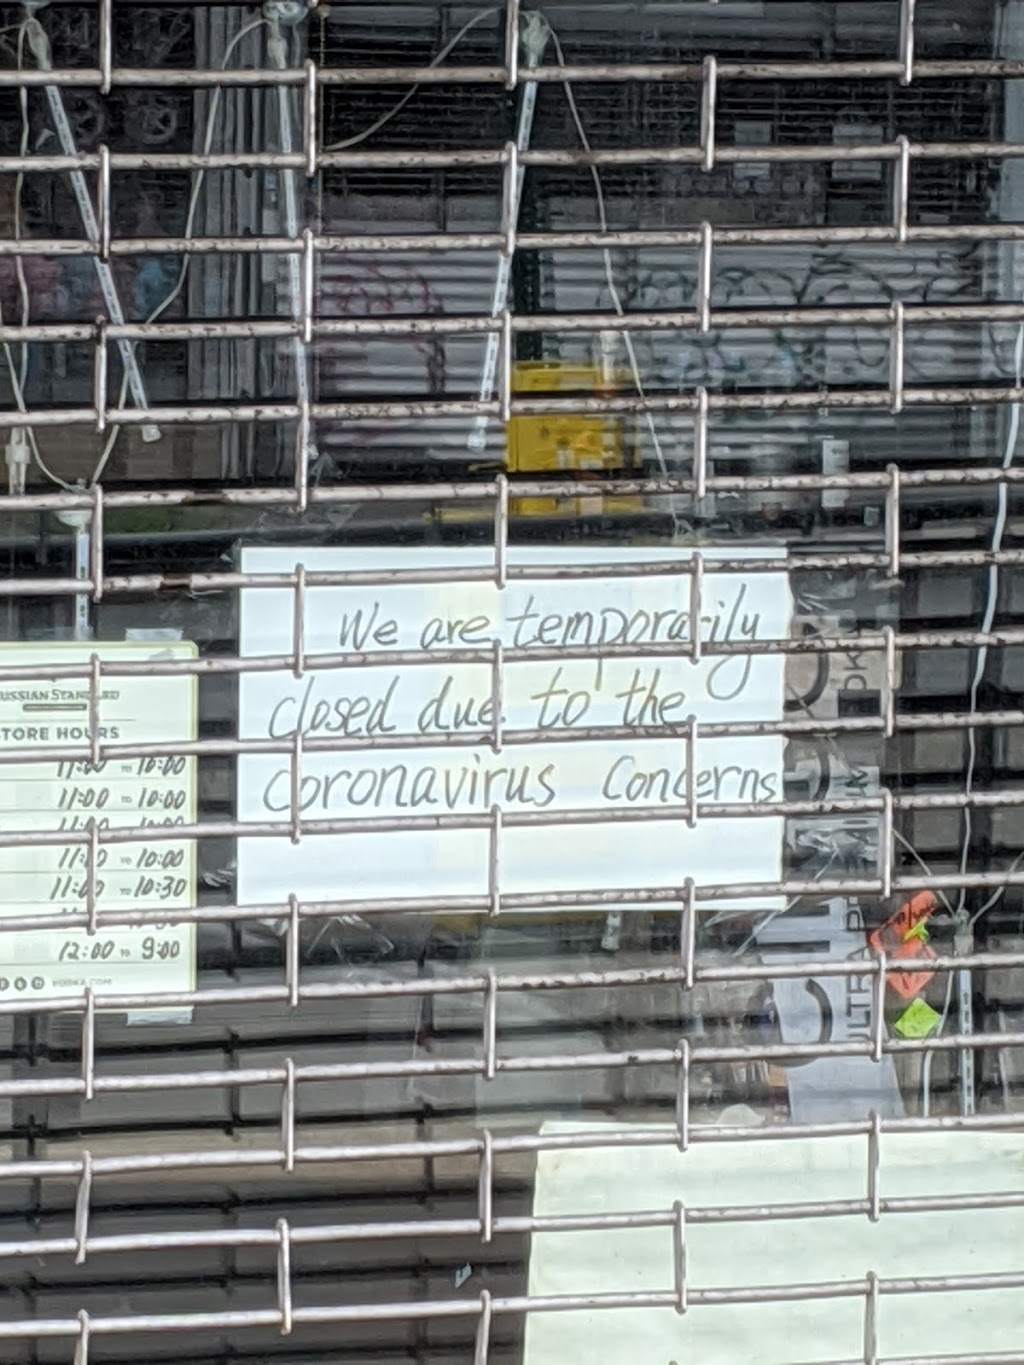 We are temporarily
closed due to the
coronavirus Concerns
RUSSIAN STANDARD
STORE HOURS
11:00 TO 10:00
11:00 TO 10:00
11:00 TO 10:00
11:00 TO 10:00
11:00 TO 10:30
12:00 TO 9:00
VODKA.COM